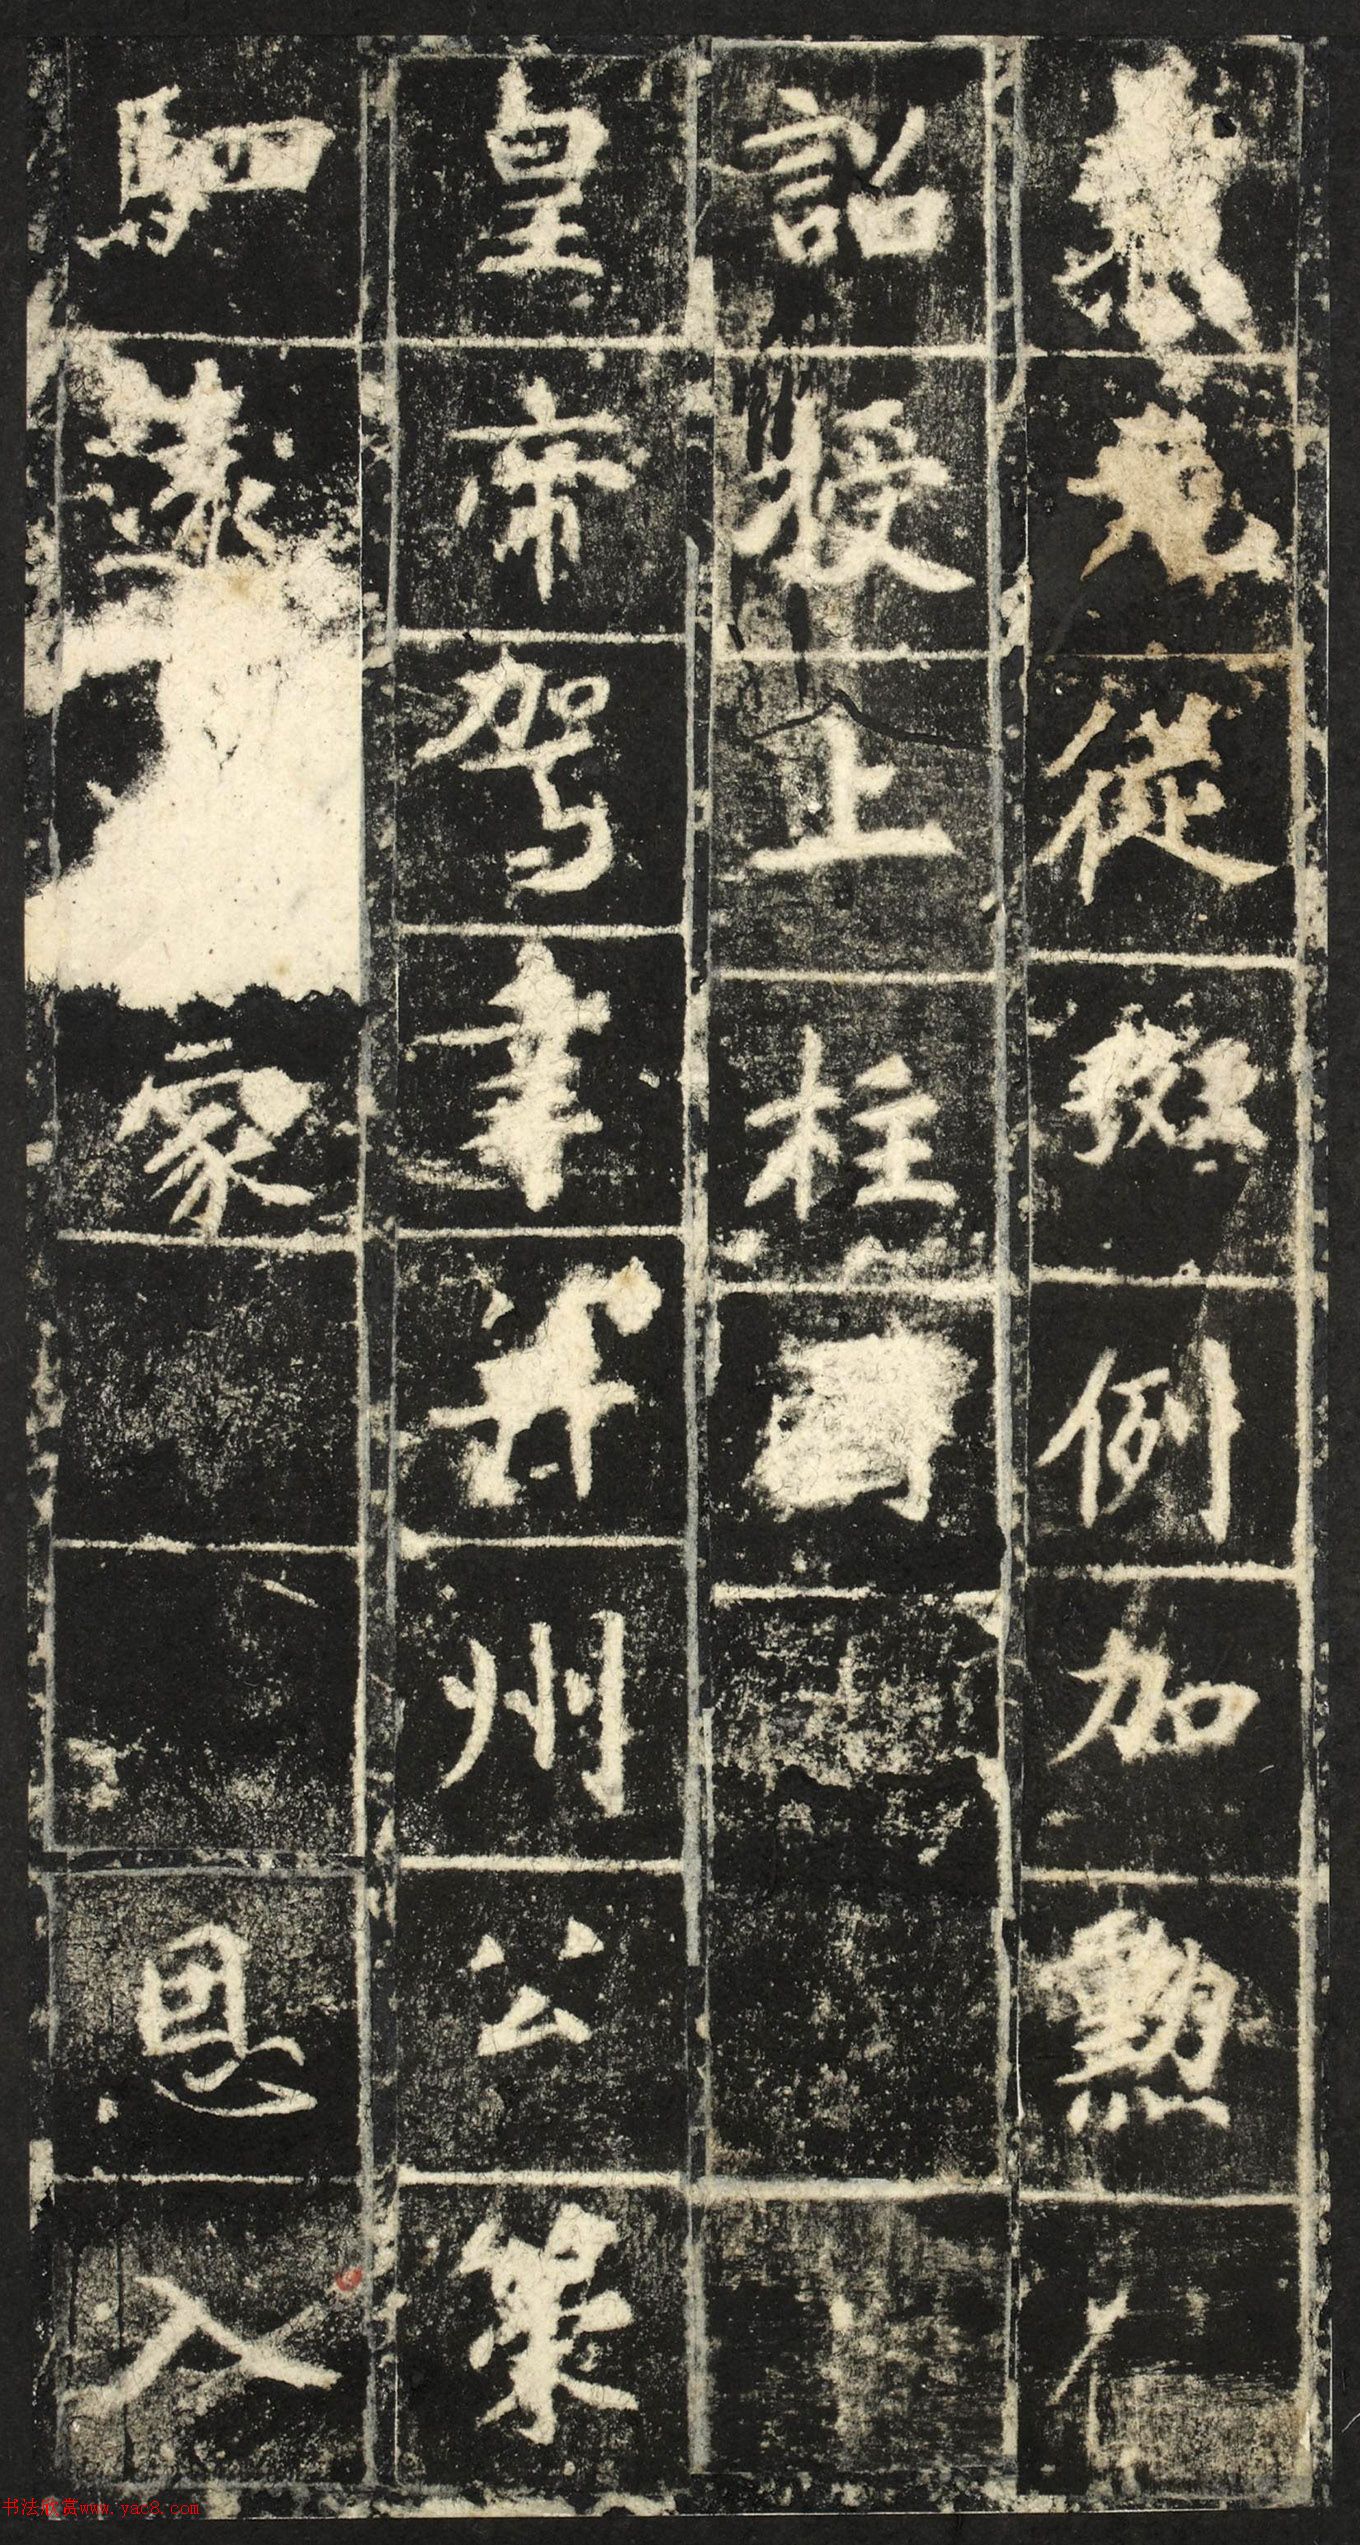 從班例加勳
詔授上柱國
皇帝駕幸并州公策
駟家恩入
书法欣赏www.yac8.com